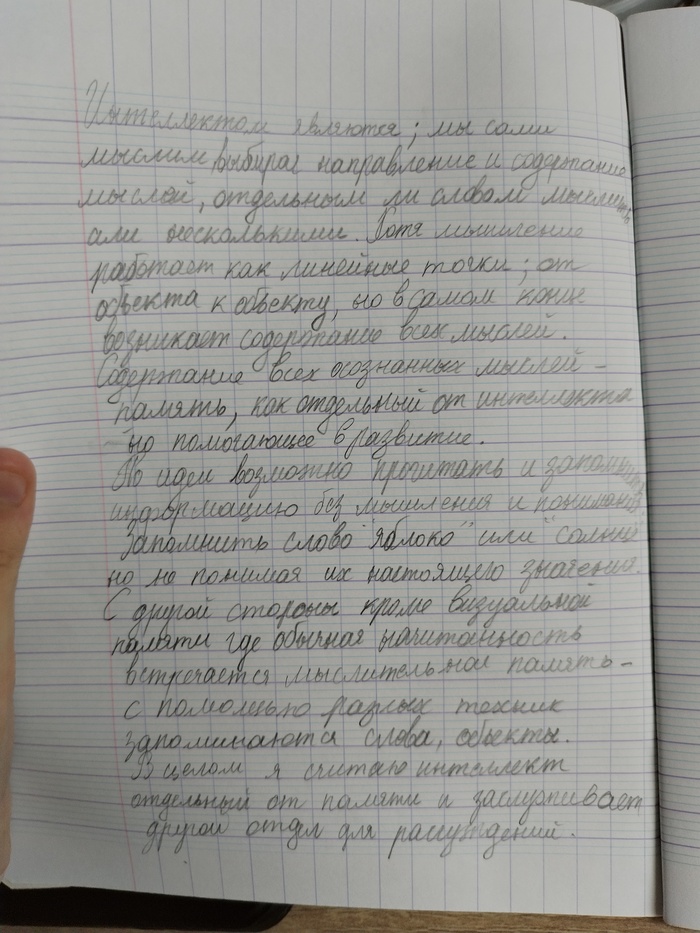 Интеллектом являются; мы сами
мыслим выбирая направление и содержание
мыслей, отдельным ли словом мыслить
али несколькими. Хотя мышление
работает как линейные точки; от
объекта к объекту, но в самом конце
возникает содержание всех мыслей.
Содержание всех осознанных мыслей -
память, как отдельный от интеллекта
но помогающее в развитие.
По идеи возможно прочитать и запомнить
информацию без мышления и понимания
Запомнить слово "яблоко" или "солнце
но не понимая их настоящего значения.
С другой стороны кроме визуальной
памяти где обычная начитанность
встречается мыслительная память -
с помощью разных техник
запоминаются слова, объекты.
В целом я считаю интеллект
отдельный от памяти и заслуживает
другой отдел для рассуждений.